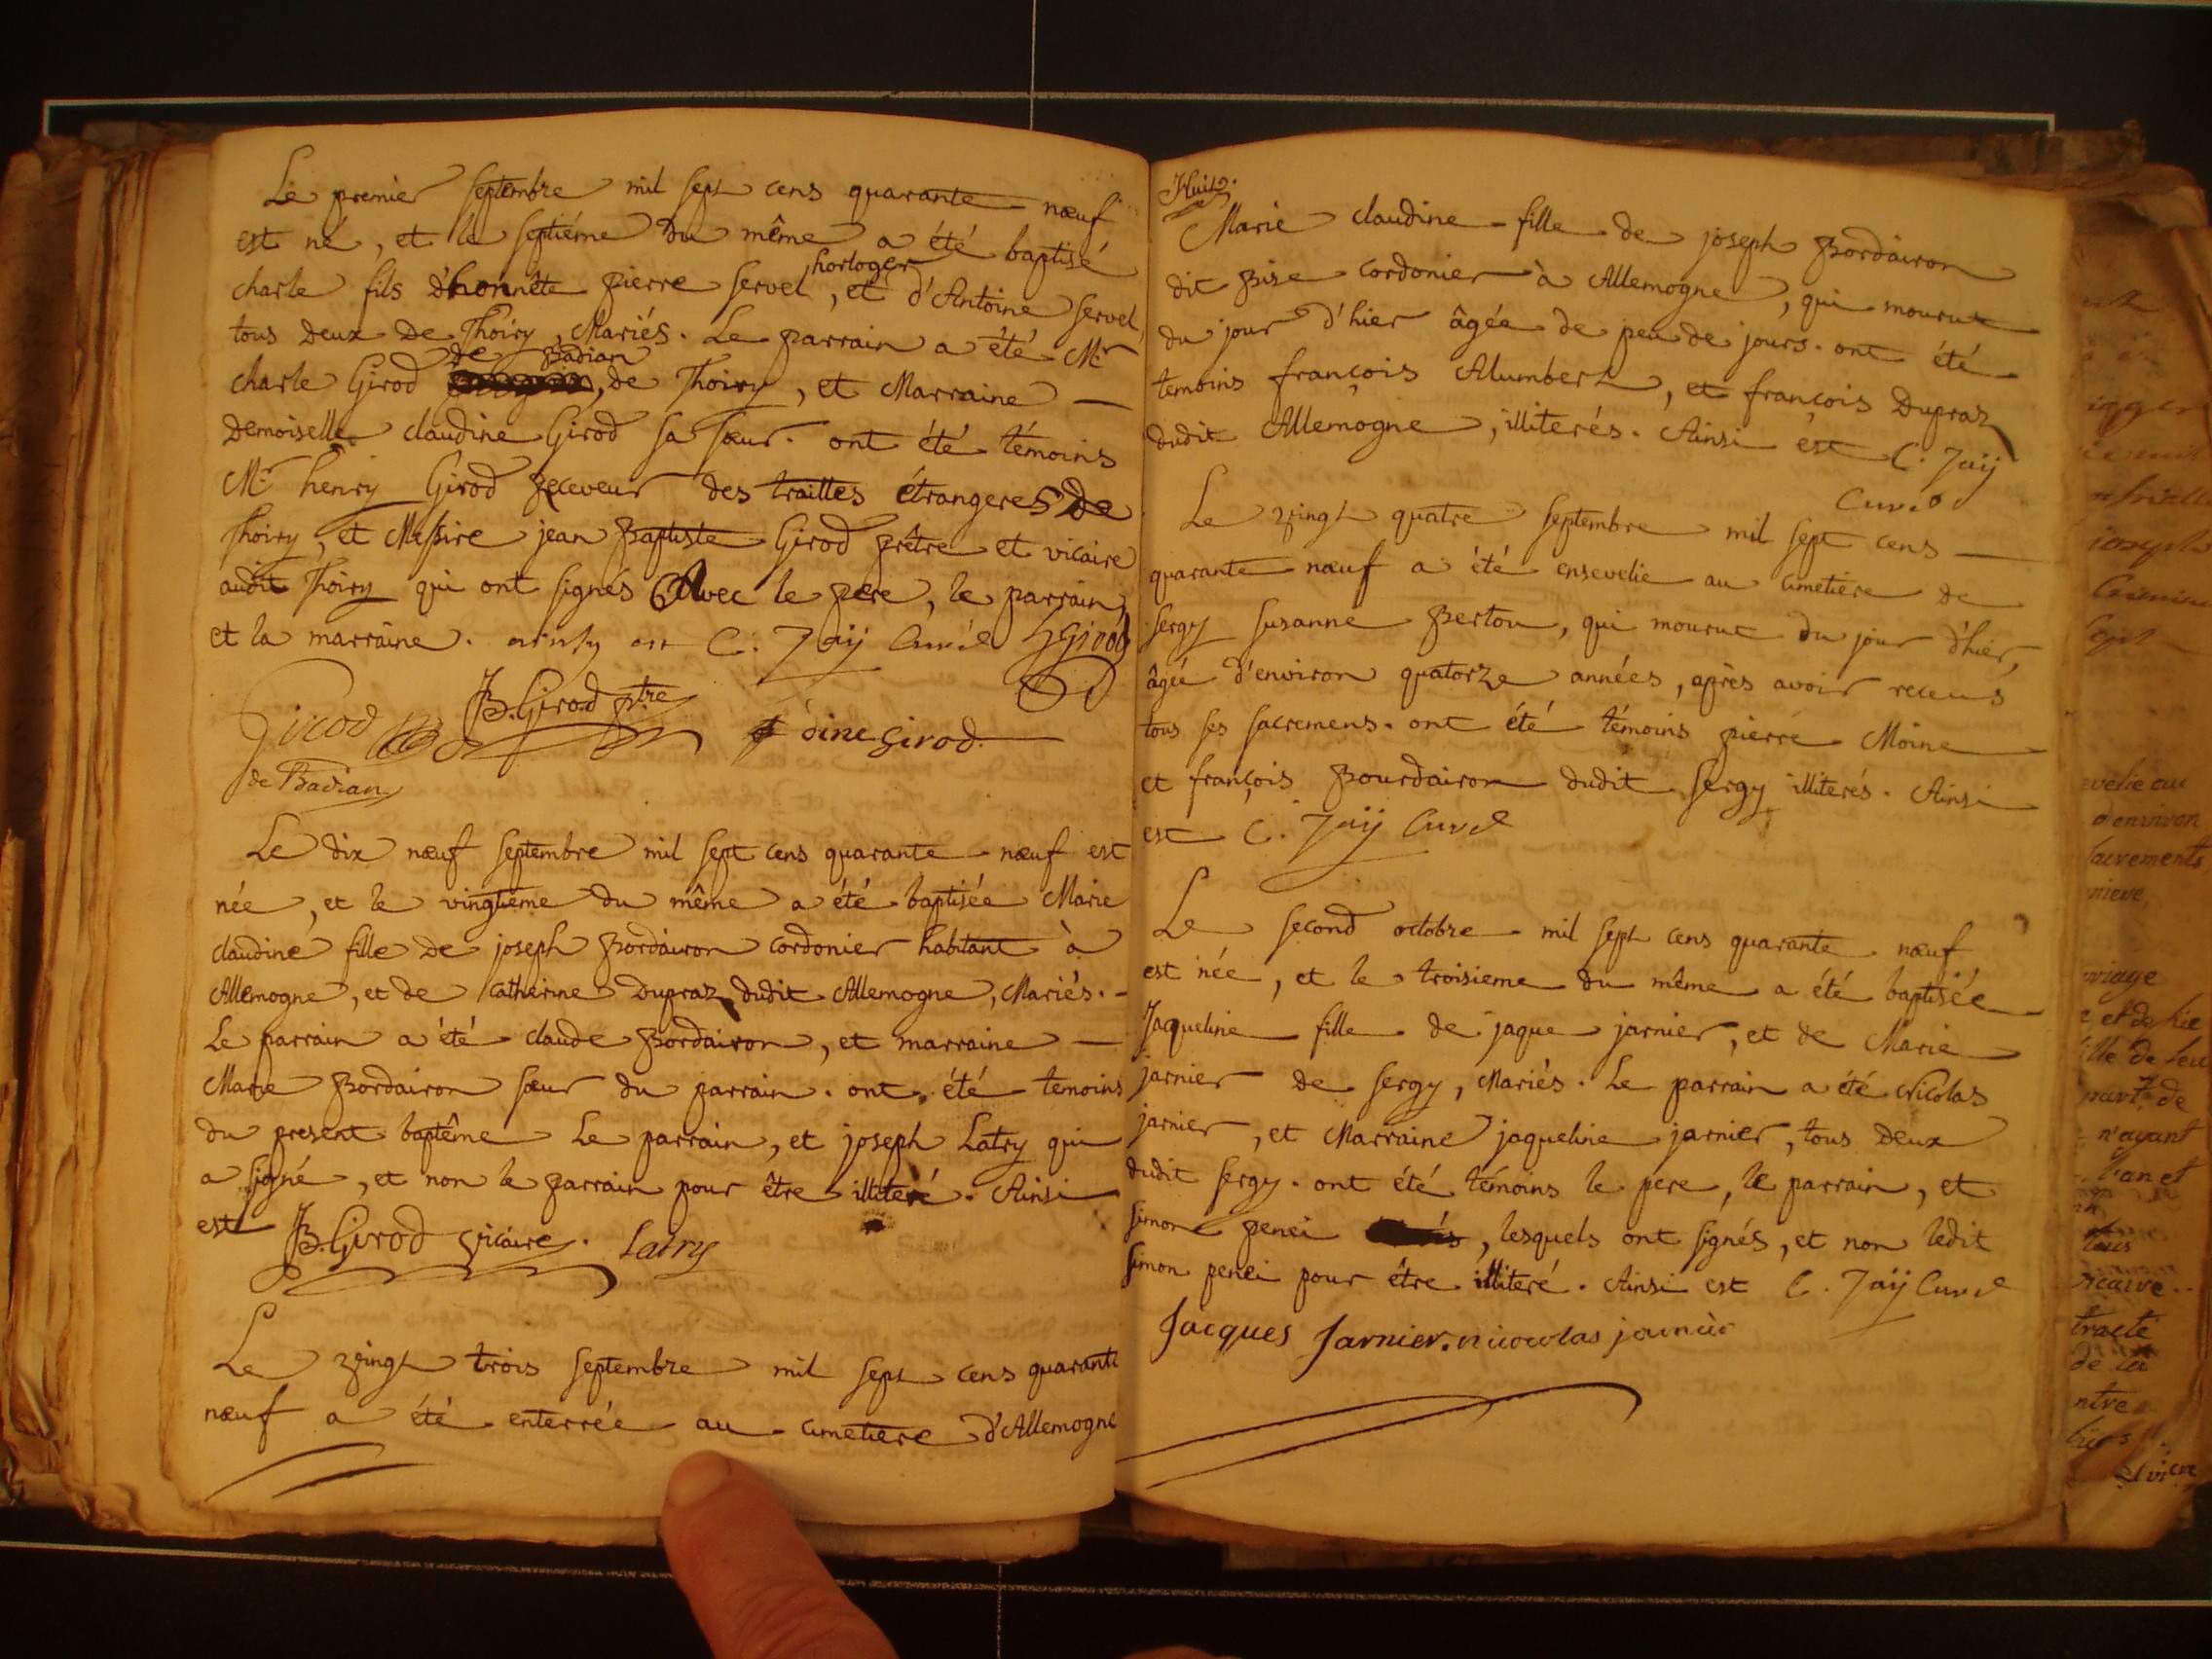 Le premier septembre mil sept cens quarante nœuf
est né, et le septiéme du même a été baptisé
horloger
charle fils d'honnête pierre servel, et d'Antoine servel
tous deux de Thoiry, Mariés. Le parrain a été Mr
de Badian
charle Girod, de Thoiry, et Marraine
Demoiselle claudine Girod sa sœur. ont été témoins
Mr henry Girod receveur des traittes étrangeres de
Thoiry, et Messire jean Baptiste Girod prêtre et vicaire
audit Thoiry qui ont signés Avec le pere, le parrain,
et la marraine. ainsy est C. Jaÿ Curé Girod
Girod JB. Girod ptre oine Girod
de Badian
Le dix nœuf septembre mil sept cens quarante nœuf est
née, et le vingtieme du même a été baptisée Marie
claudine fille de joseph Bordairon cordonier habitant à
Allemogne, et de catherine Dupraz dudit Allemogne, Mariés.
Le parrain a été claude Bordairon, et marraine
Marie Bordairon sœur du parrain. ont été temoins
du present baptême Le parrain, et joseph Latry qui
a signé, et non le parrain pour être illiteré. Ainsi
est JB. Girod vicaire. Latry
Le vingt trois septembre mil sept cens quarante
nœuf a été enterrée au cimetiere d'Allemogne
Huit.
Marie claudine fille de joseph Bordairon
dit Bise cordonier à Allemogne, qui mourut
du jour d'hier âgée de peu de jours. ont été
temoins françois Alumbert, et françois Dupraz
dudit Allemogne, illiterés. Ainsi est C. Jaÿ
Curé
Le vingt quatre septembre mil sept cens
quarante nœuf a été ensevelie au cimetiere de
sergy susanne Berton, qui mourut du jour d'hier,
âgée d'environ quatorze années, après avoir receus
tous ses sacremens. ont été témoins pierre Moine
et françois Bourdairon dudit sergy illiterés. Ainsi
est C. Jaÿ Curé
Le second octobre mil sept cens quarante nœuf
est née, et le troisieme du même a été baptisée
Jaqueline fille de jaque jarnier, et de Marie
jarnier de sergy, Mariés. Le parrain a été Nicolas
jarnier, et Marraine jaqueline jarnier, tous deux
dudit sergy. ont été témoins le pere, le parrain, et
simon penei, lesquels ont signés, et non ledit
simon penei pour être illiteré. Ainsi est C. Jaÿ Curé
Jacques Jarnier. nicowlas jarnier
velie au
d'environ
sacrements
nieve,
riage
n'ayant
vicaire
tracté